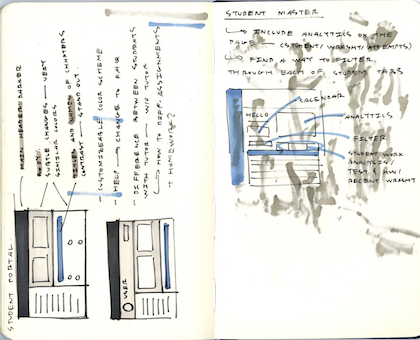 STUDENT PORTAL
MAIN HEADER DARKER
SUBTLE CHANGES — VERY
SIMILAR COLORS
OF CHAPTERS
CONTRAST — STAND OUT
- CUSTOMIZEABLE COLOR SCHEME
HELP → CHANGE TO FAQ
- DIFFERENCE BETWEEN STUDENTS
WITH TUTOR — W/O TUTOR
HOW TO DIFF. ASSIGNMENTS
+ HOMEWORK?
USER
STUDENT MASTER
→ INCLUDE ANALYTICS ON THE
PAGE — (STUDENT/WRKSHT/ATTEMPTS)
→ FIND A WAY TO FILTER
THROUGH EACH OF STUDENT TABS
CALENDAR
HELLO
ANALYTICS
FILTER
STUDENT WORK
ANALYSIS/
TEST & HW/
RECENT WRKSHT